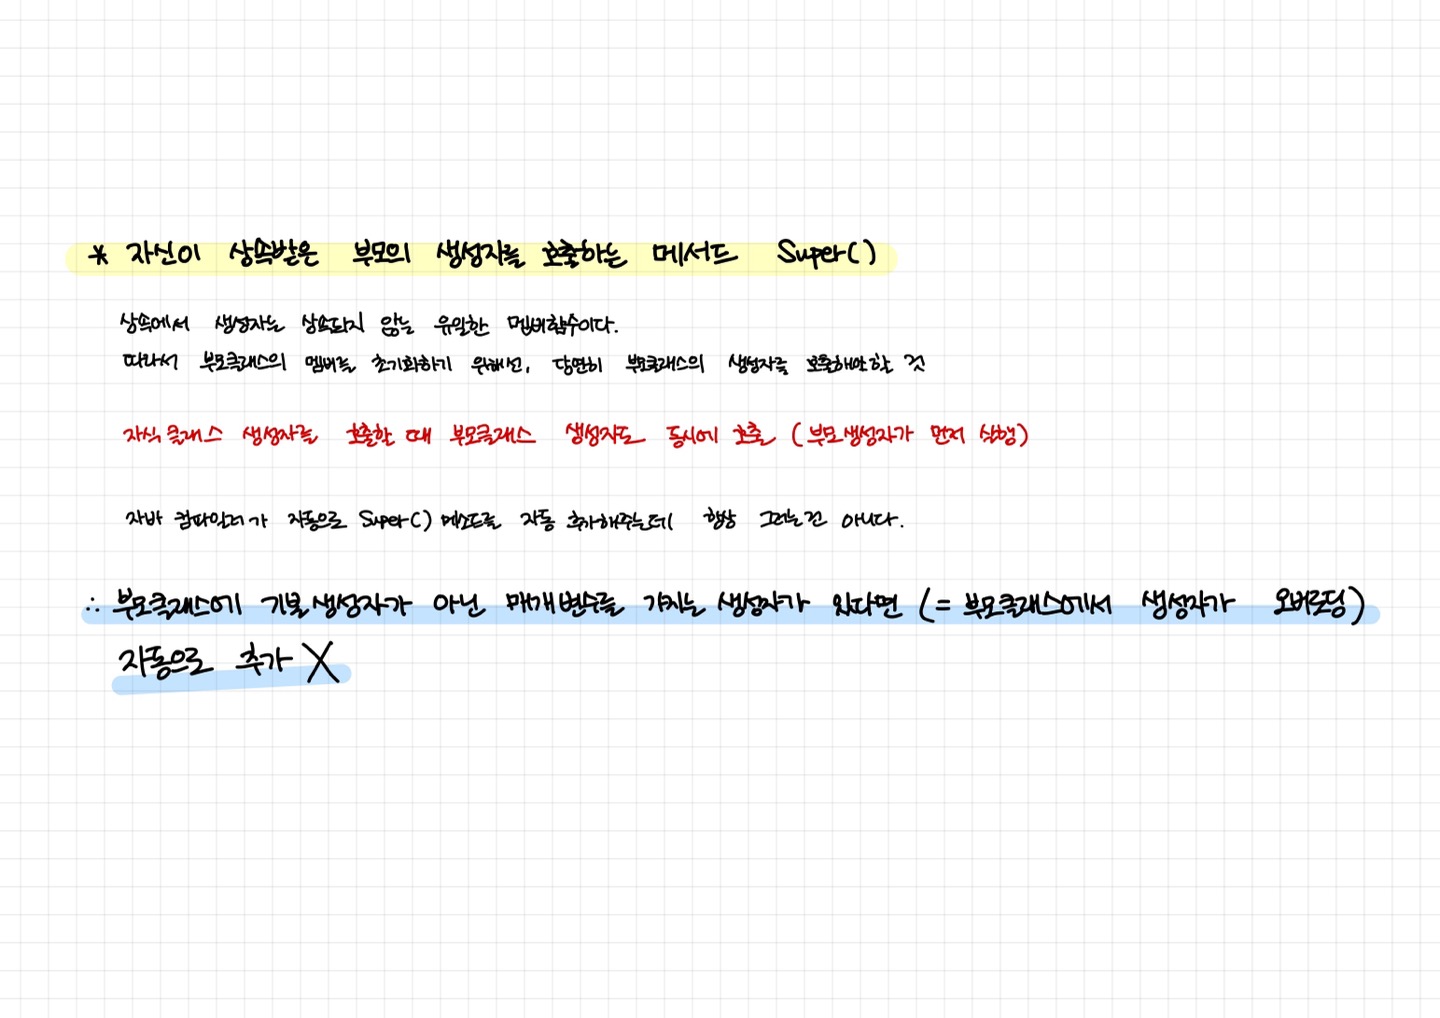 * 자신이 상속받은 부모의 생성자를 호출하는 메서드 Super()
상속에서 생성자는 상속되지 않는 유일한 멤버함수이다.
따라서 부모클래스의 멤버를 초기화하기 위해선, 당연히 부모클래스의 생성자를 호출해야할 것
자식 클래스 생성자를 호출할 때 부모클래스 생성자도 동시에 호출 (부모생성자가 먼저 실행)
자바 컴파일러가 자동으로 Super() 메소드를 자동 추가해주는데 항상 그러는건 아니다.
∴ 부모클래스에 기본생성자가 아닌 매개변수를 가지는 생성자가 있다면 (= 부모클래스에서 생성자가 오버로딩)
자동으로 추가 X